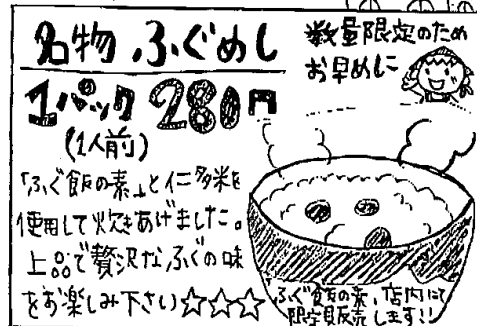 名物 ふぐめし
数量限定のため
お早めに
1パック 280円
(1人前)
「ふぐ飯の素」と仁多米を
使用して炊きあげました。
上品で贅沢なふぐの味
をお楽しみ下さい☆☆☆
「ふぐ飯の素」店内にて
限定販売します!!